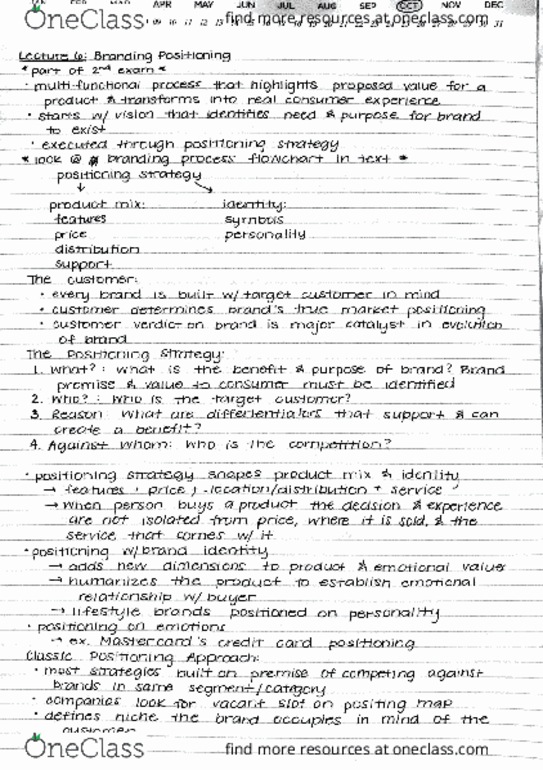 APR MAY JUN JUL AUG SEP OCT NOV DEC
OneClass find more resources at oneclass.com
Lecture 6: Branding Positioning
* part of 2nd exam *
· multi-functional process that highlights proposed value for a
product & transforms into real consumer experience
· starts w/ vision that identifies need & purpose for brand
to exist
· executed through positioning strategy
* look @ branding process flowchart in text *
positioning strategy
↓ ↘
product mix: identity:
features symbols
price personality
distribution
support
The customer:
· every brand is built w/ target customer in mind
· customer determines brand's true market positioning
· customer verdict on brand is major catalyst in evolution
of brand
The Positioning Strategy:
1. What?: what is the benefit & purpose of brand? Brand
promise & value to consumer must be identified
2. Who?: Who is the target customer?
3. Reason: What are differentiators that support & can
create a benefit?
4. Against whom: who is the competition?
· positioning strategy shapes product mix & identity
→ features, price, location/distribution + service
→ When person buys a product the decision & experience
are not isolated from price, where it is sold, & the
service that comes w/ it
· positioning w/ brand identity
→ adds new dimensions to product & emotional value
→ humanizes the product to establish emotional
relationship w/ buyer
→ lifestyle brands positioned on personality
· positioning on emotions
→ ex. Mastercard's credit card positioning
Classic Positioning Approach:
· most strategies built on premise of competing against
brands in same segment/category
· companies look for vacant slot on positing map
· defines niche the brand occupies in mind of the
customer
OneClass find more resources at oneclass.com